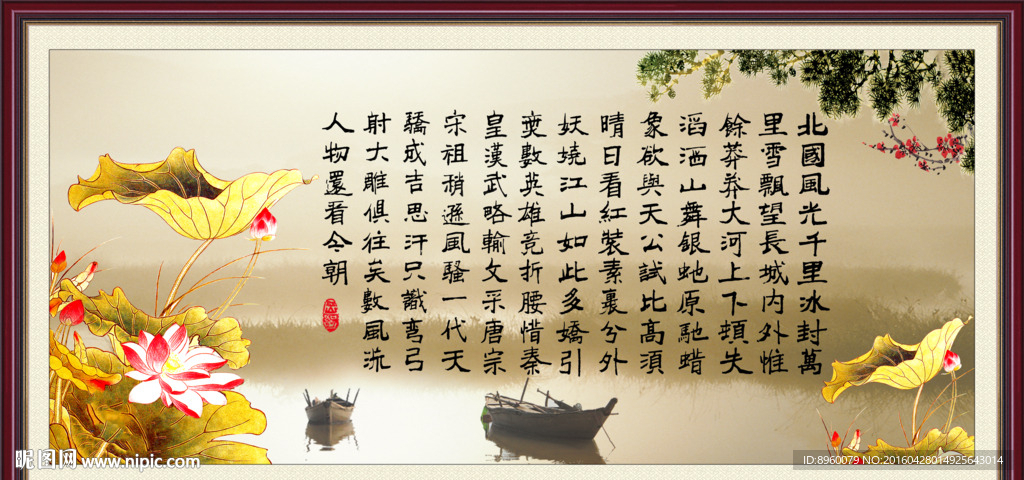 北國風光千里冰封萬
里雪飄望長城内外惟
餘莽莽大河上下頓失
滔滔山舞銀虵原馳蜡
象欲與天公試比高須
晴日看紅裝素裹兮外
妖嬈江山如此多嬌引
無數英雄竞折腰惜秦
皇漢武略輸文采唐宗
宋祖稍遜風騷一代天
驕成吉思汗只識彎弓
射大雕俱往矣數風流
人物還看今朝
昵图网 www.nipic.com
ID:8960079 NO:20160428014925643014